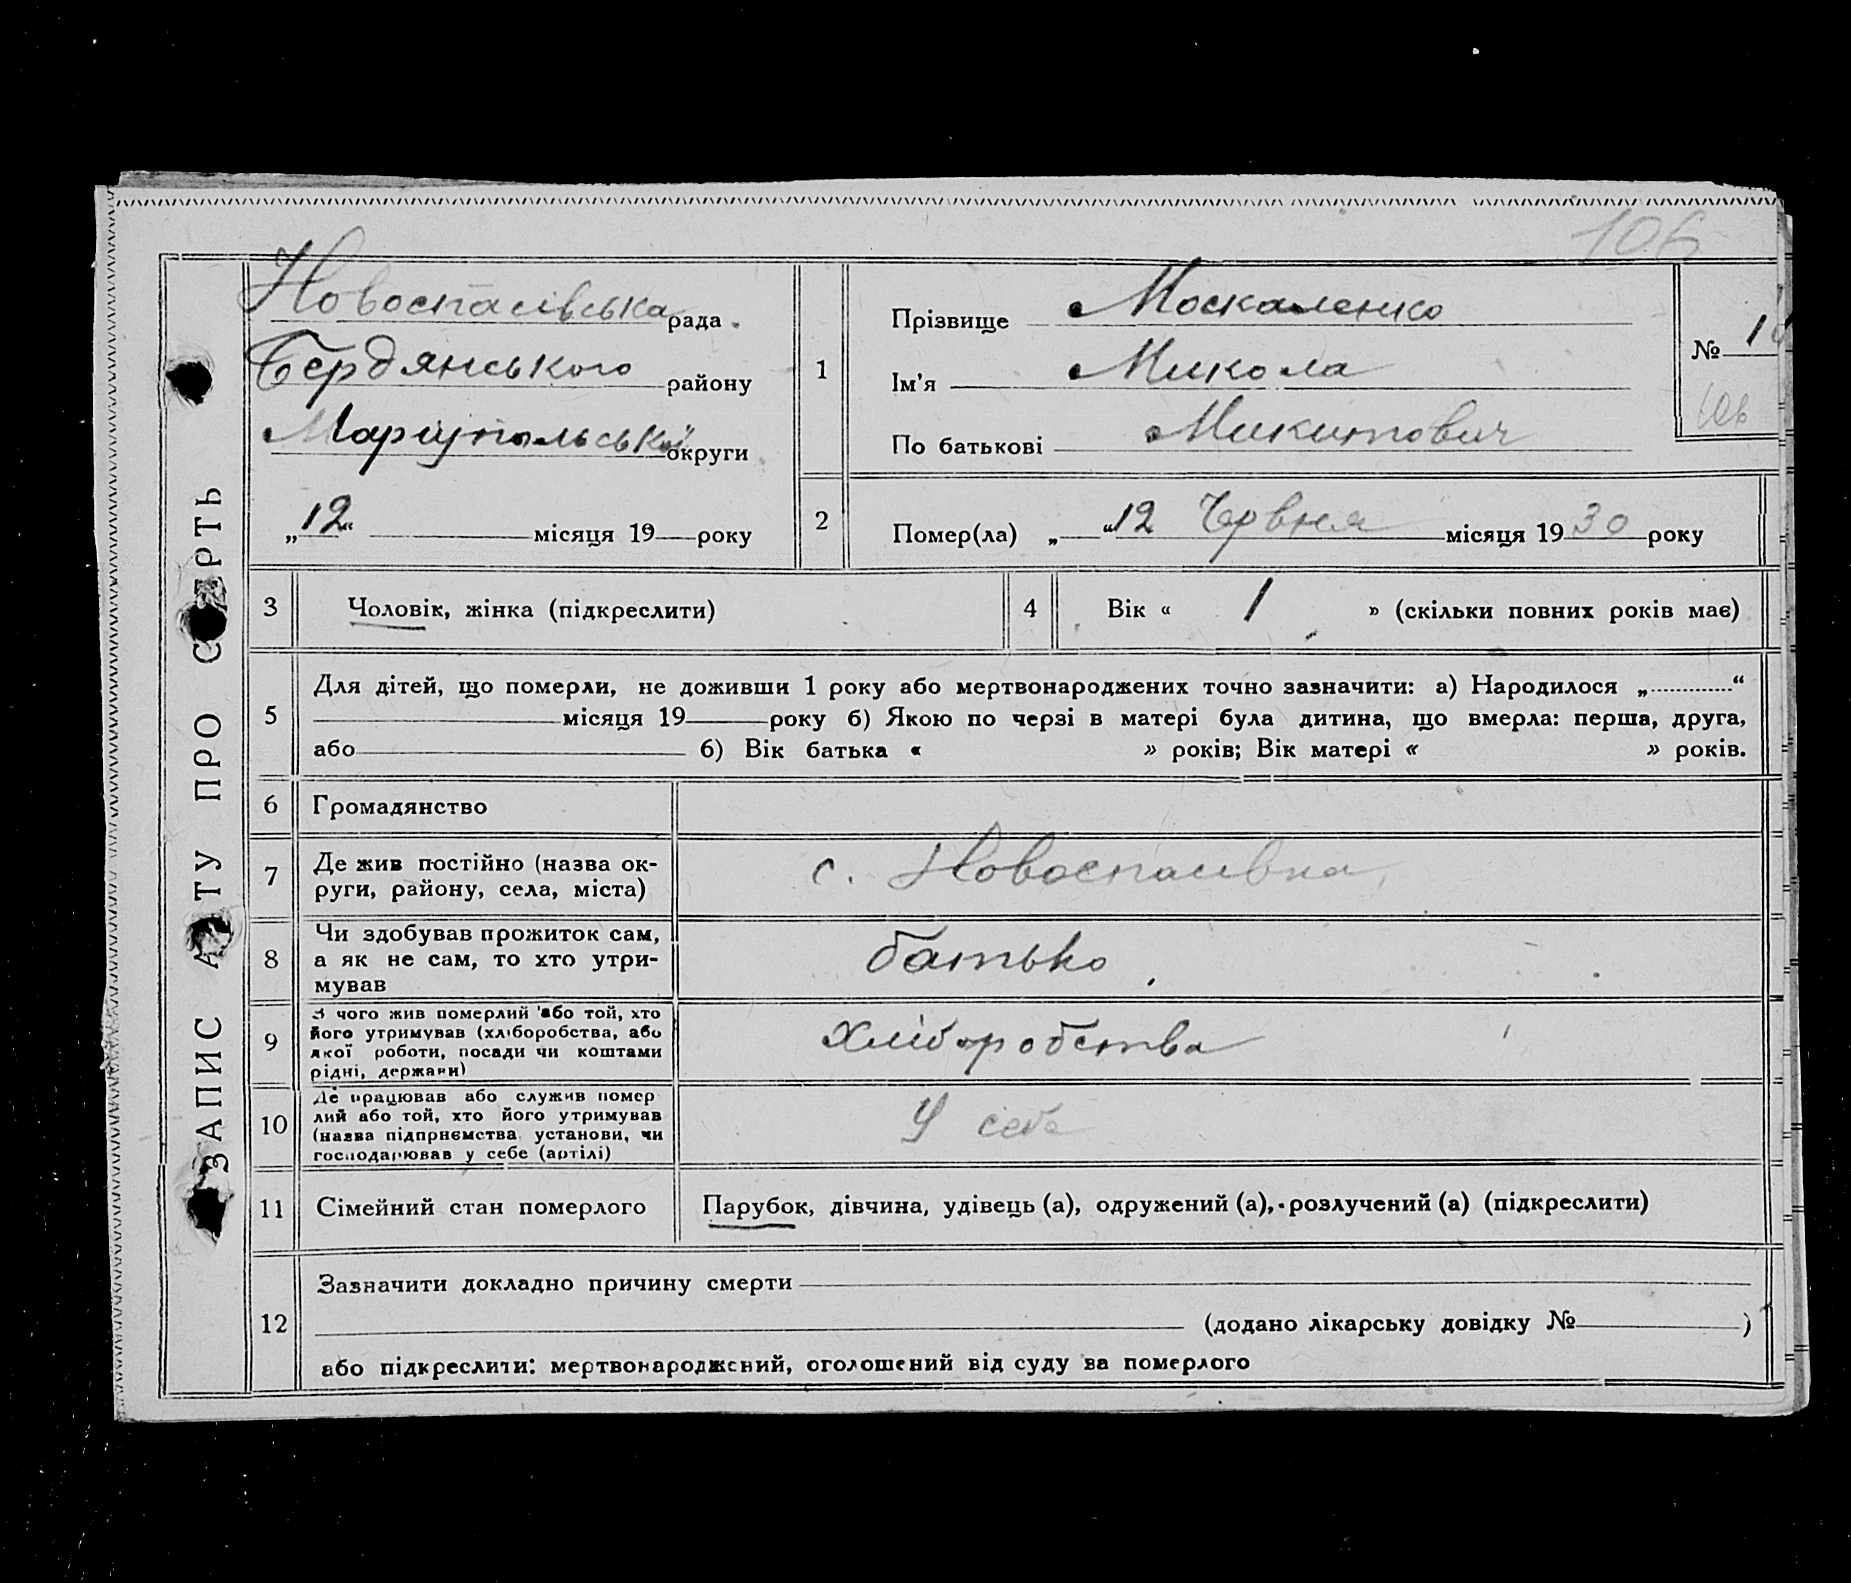 106
ЗАПИС АКТУ ПРО СМЕРТЬ
Новоспасівська рада
Бердянського району
Маріупольської округи
„12“ місяця 19 року
1
Прізвище Москаленко
Ім'я Микола
По батькові Микитович
№
106
2
Помер(ла) „12“ Червня місяця 1930 року
3 Чоловік, жінка (підкреслити)
4 Вік « 1 » (скільки повних років має)
5
Для дітей, що померли, не доживши 1 року або мертвонароджених точно зазначити: а) Народилося „ “
місяця 19 року б) Якою по черзі в матері була дитина, що вмерла: перша, друга,
або б) Вік батька « » років; Вік матері « » років.
6 Громадянство
7 Де жив постійно (назва ок-
руги, району, села, міста)
с. Новоспасівка
8 Чи здобував прожиток сам,
а як не сам, то хто утри-
мував
батько
9 З чого жив померлий або той, хто
його утримував (хліборобства, або
якої роботи, посади чи коштами
рідні, держави)
Хліборобства
10 Де працював або служив помер
лий або той, хто його утримував
(назва підприємства установи, чи
господарював у себе (артілі)
У себе
11 Сімейний стан померлого
Парубок, дівчина, удівець (а), одружений (а), розлучений (а) (підкреслити)
12
Зазначити докладно причину смерти
(додано лікарську довідку № )
або підкреслити: мертвонароджений, оголошений від суду за померлого